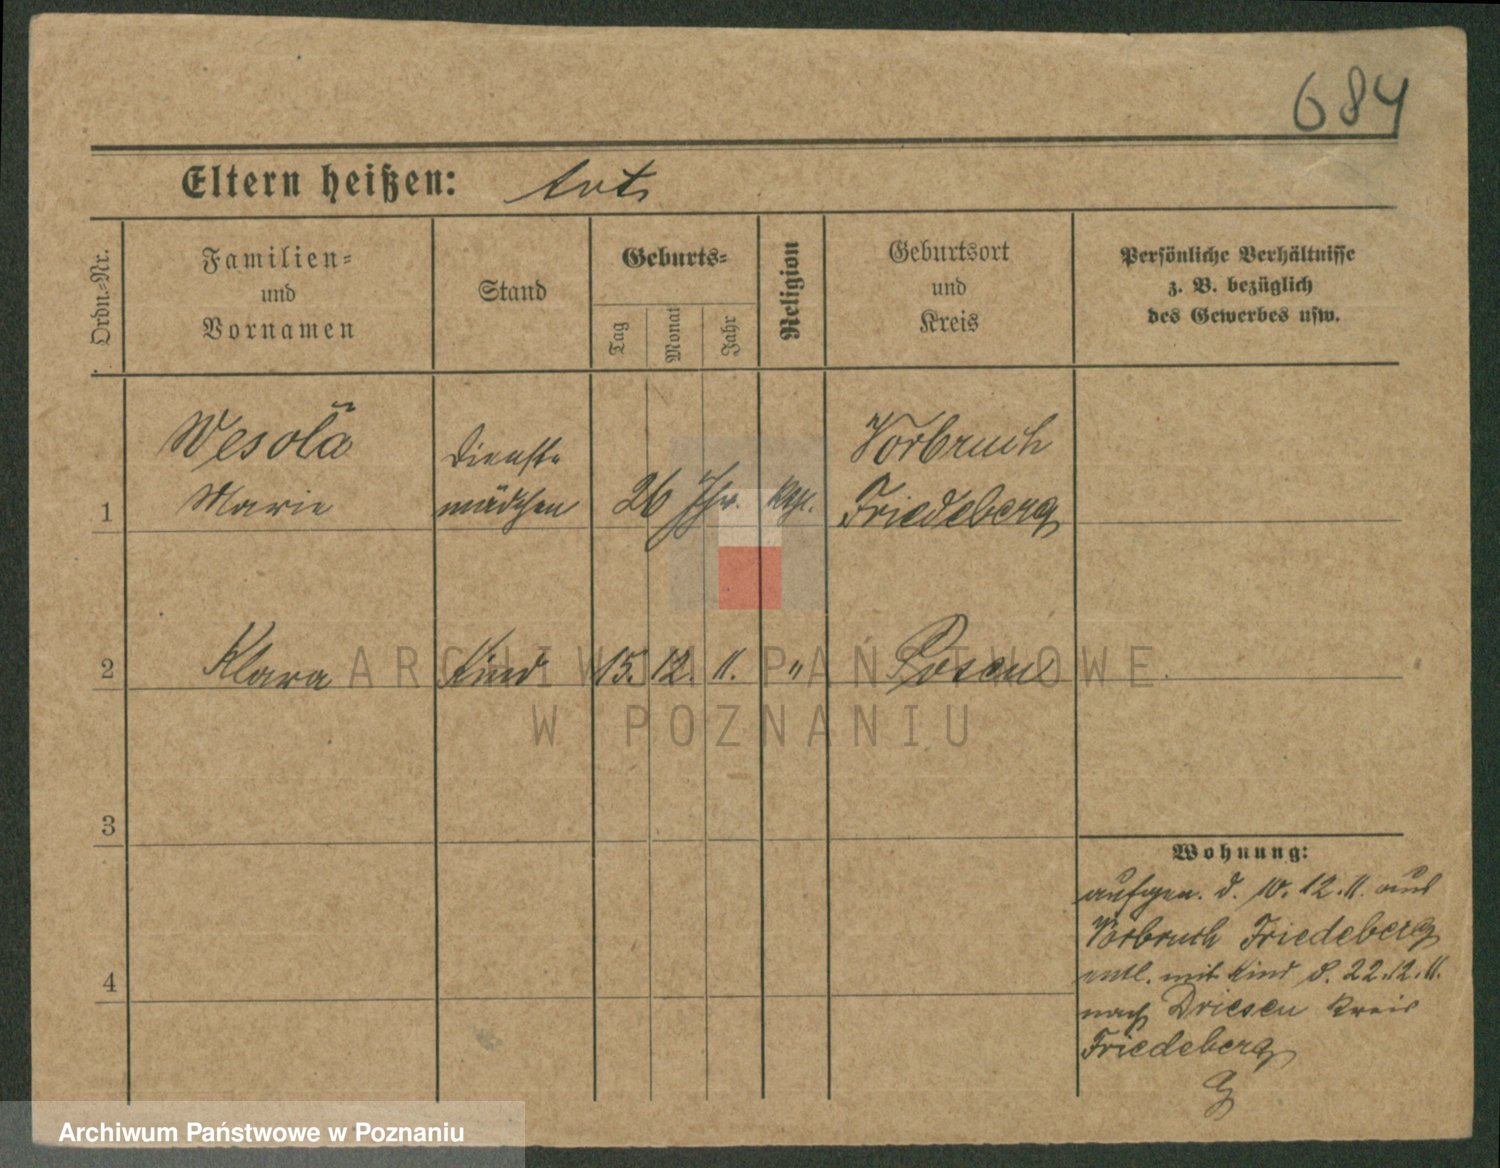 684
Eltern heißen:
Ordn.-Nr.
Familien-
und
Vornamen
Stand
Geburts-
Tag
Monat
Jahr
Religion
Geburtsort
und
Kreis
Persönliche Verhältnisse
z. B. bezüglich
des Gewerbes usw.
Wesola
Marie
Dienst-
mädchen
26 Jhr.
kth.
Vorbruch
Friedeberg
1
2 Klara Kind 15. 12. 11. " Posen
3
4
Wohnung:
aufgen. d. 10. 12. 11. aus
Vorbruch Friedeberg
entl. mit Kind d. 22.12.11.
nach Driesen Kreis
Friedeberg
ARCHIWUM PAŃSTWOWE
W POZNANIU
Archiwum Państwowe w Poznaniu